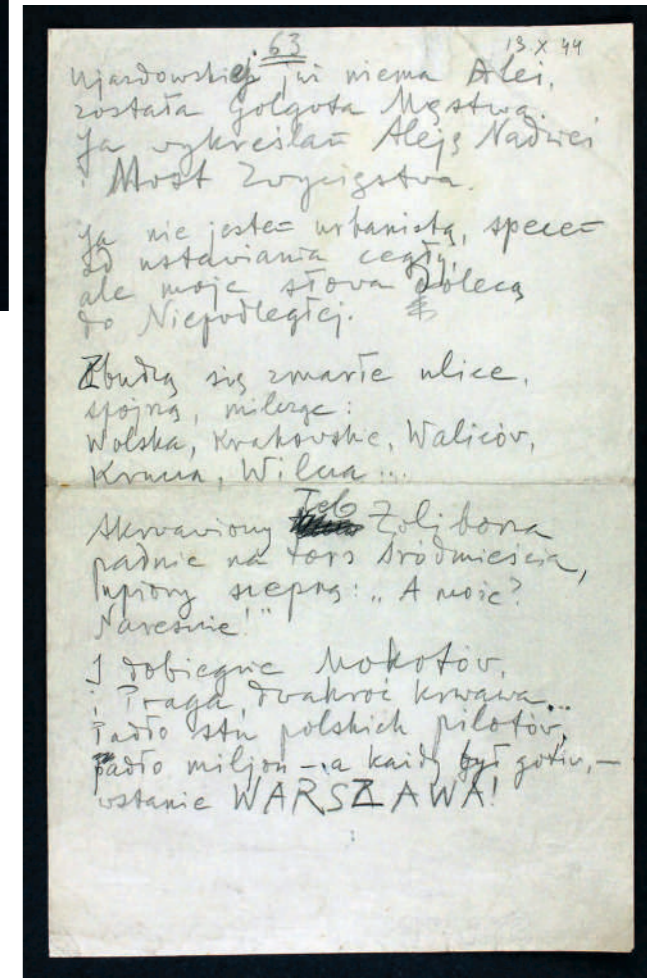 63
13. X 44
Ujazdowskiej już niema Alei,
została Golgota Męstwa.
Ja wykreślam Aleję Nadziei
i Most Zwycięstwa.
Ja nie jestem urbanistą, specem
od ustawiania cegły,
ale moje słowa dolecą
do Niepodległej.
Zbudzą się zmarłe ulice,
spojrzą, milcząc:
Wolska, Krakowskie, Waliców,
Krucza, Wilcza...
Skrwawiony łeb Żoliborza
padnie na tors Śródmieścia,
upiory szepną: „A może?
Nareszcie!"
I dobiegnie Mokotów,
i Praga, dwakroć krwawa...
Padło stu polskich pilotów,
padło miljon – a każdy był gotów, –
wstanie WARSZAWA!